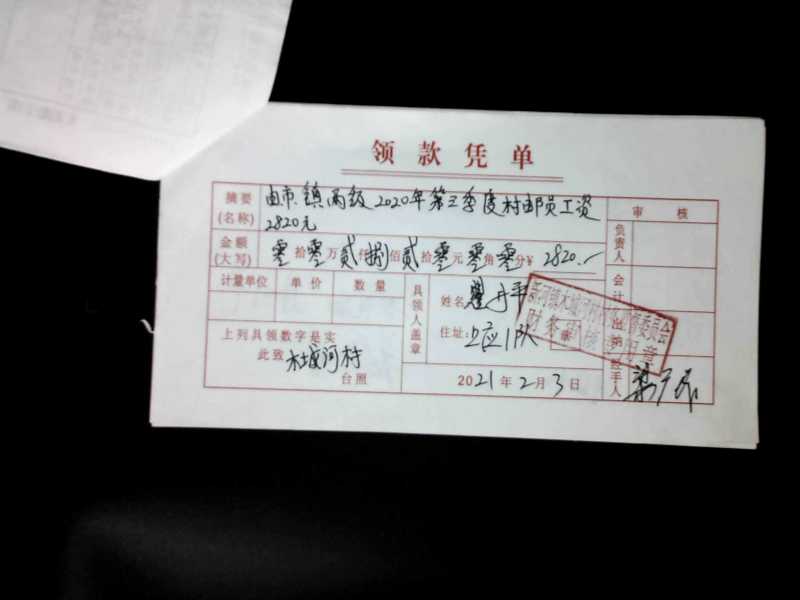 领款凭单
摘要 由市、镇两级2020年第三季度村邮员工资
(名称) 2820元
审核
金额
(大写) 零拾零万贰仟捌佰贰拾零元零角零分¥ 2820.—
负责人
计量单位 单价 数量
具领人盖章
姓名: 丹平
住址: 应1队
会计
出纳
财务审核专用章
上列具领数字是实
此致 木城河村
台照
2021年2月3日
经手人